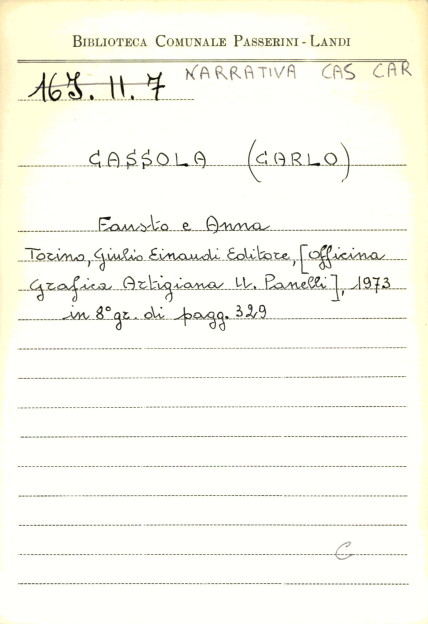 BIBLIOTECA COMUNALE PASSERINI - LANDI
NARRATIVA CAS CAR
16J. II. 7
CASSOLA (CARLO)
Fausto e Anna
Torino, Giulio Einaudi Editore, [Officina
Grafica Artigiana U. Panelli], 1973
in 8° gr. di pagg. 329
C